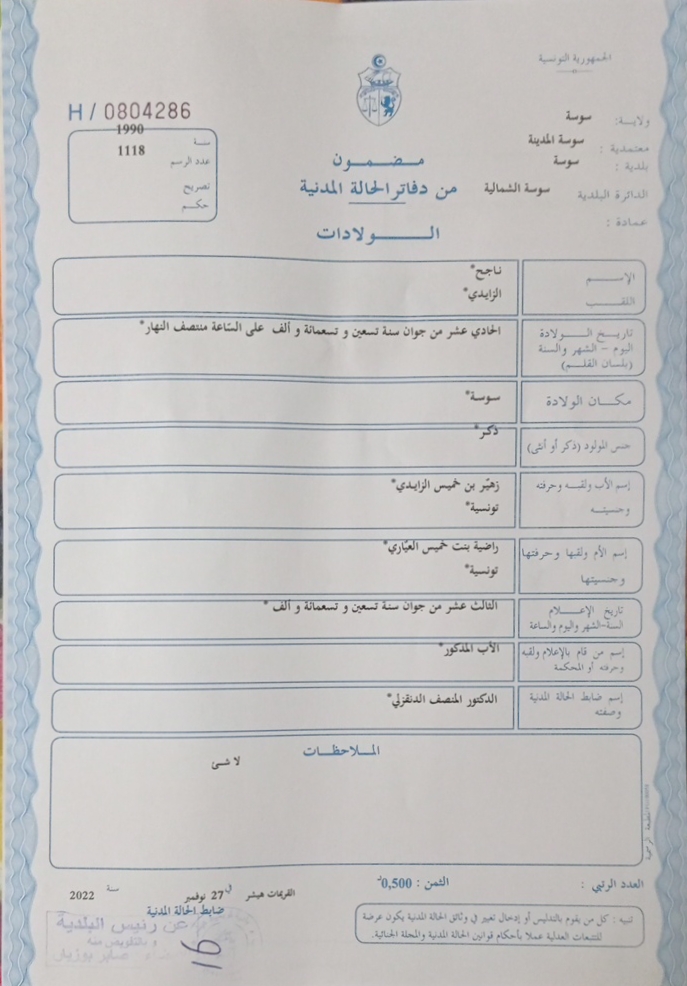 الجمهورية التونسية
H / 0804286
ولاية: سوسة
معتمدية : سوسة المدينة
بلدية : سوسة
الدائرة البلدية سوسة الشمالية
عمادة :
سنة 1990
عدد الرسم 1118
تصريح
حكم
مضمون
من دفاتر الحالة المدنية
الولادات
الإسم ناجح*
اللقب الزايدي*
تاريخ الولادة الحادي عشر من جوان سنة تسعين و تسعمائة و ألف على السّاعة منتصف النهار*
اليوم - الشهر والسنة
(بلسان القلم)
مكان الولادة سوسة*
جنس المولود (ذكر أو أنثى) ذكر*
إسم الأب ولقبه وحرفته زهيّر بن خميس الزايدي*
وجنسيته تونسية*
إسم الأم ولقبها وحرفتها راضية بنت خميس العيّاري*
وجنسيتها تونسية*
تاريخ الإعلام الثالث عشر من جوان سنة تسعين و تسعمائة و ألف *
السنة-الشهر واليوم والساعة
إسم من قام بالإعلام ولقبه الأب المذكور*
وحرفته أو المحكمة
إسم ضابط الحالة المدنية الدكتور المنصف الدنقزلي*
وصفته
الملاحظات
لا شئ
المطبعة الرسمية
العدد الرتبي : الثمن : 0,500د
القريمات هيشر في 27 نوفمبر سنة 2022
ضابط الحالة المدنية
عن رئيس البلدية
و بالتفويض منه
صابر بوزيان
91
تنبيه : كل من يقوم بالتدليس أو إدخال تغيير في وثائق الحالة المدنية يكون عرضة
للتتبعات العدلية عملا بأحكام قوانين الحالة المدنية والمجلة الجنائية.